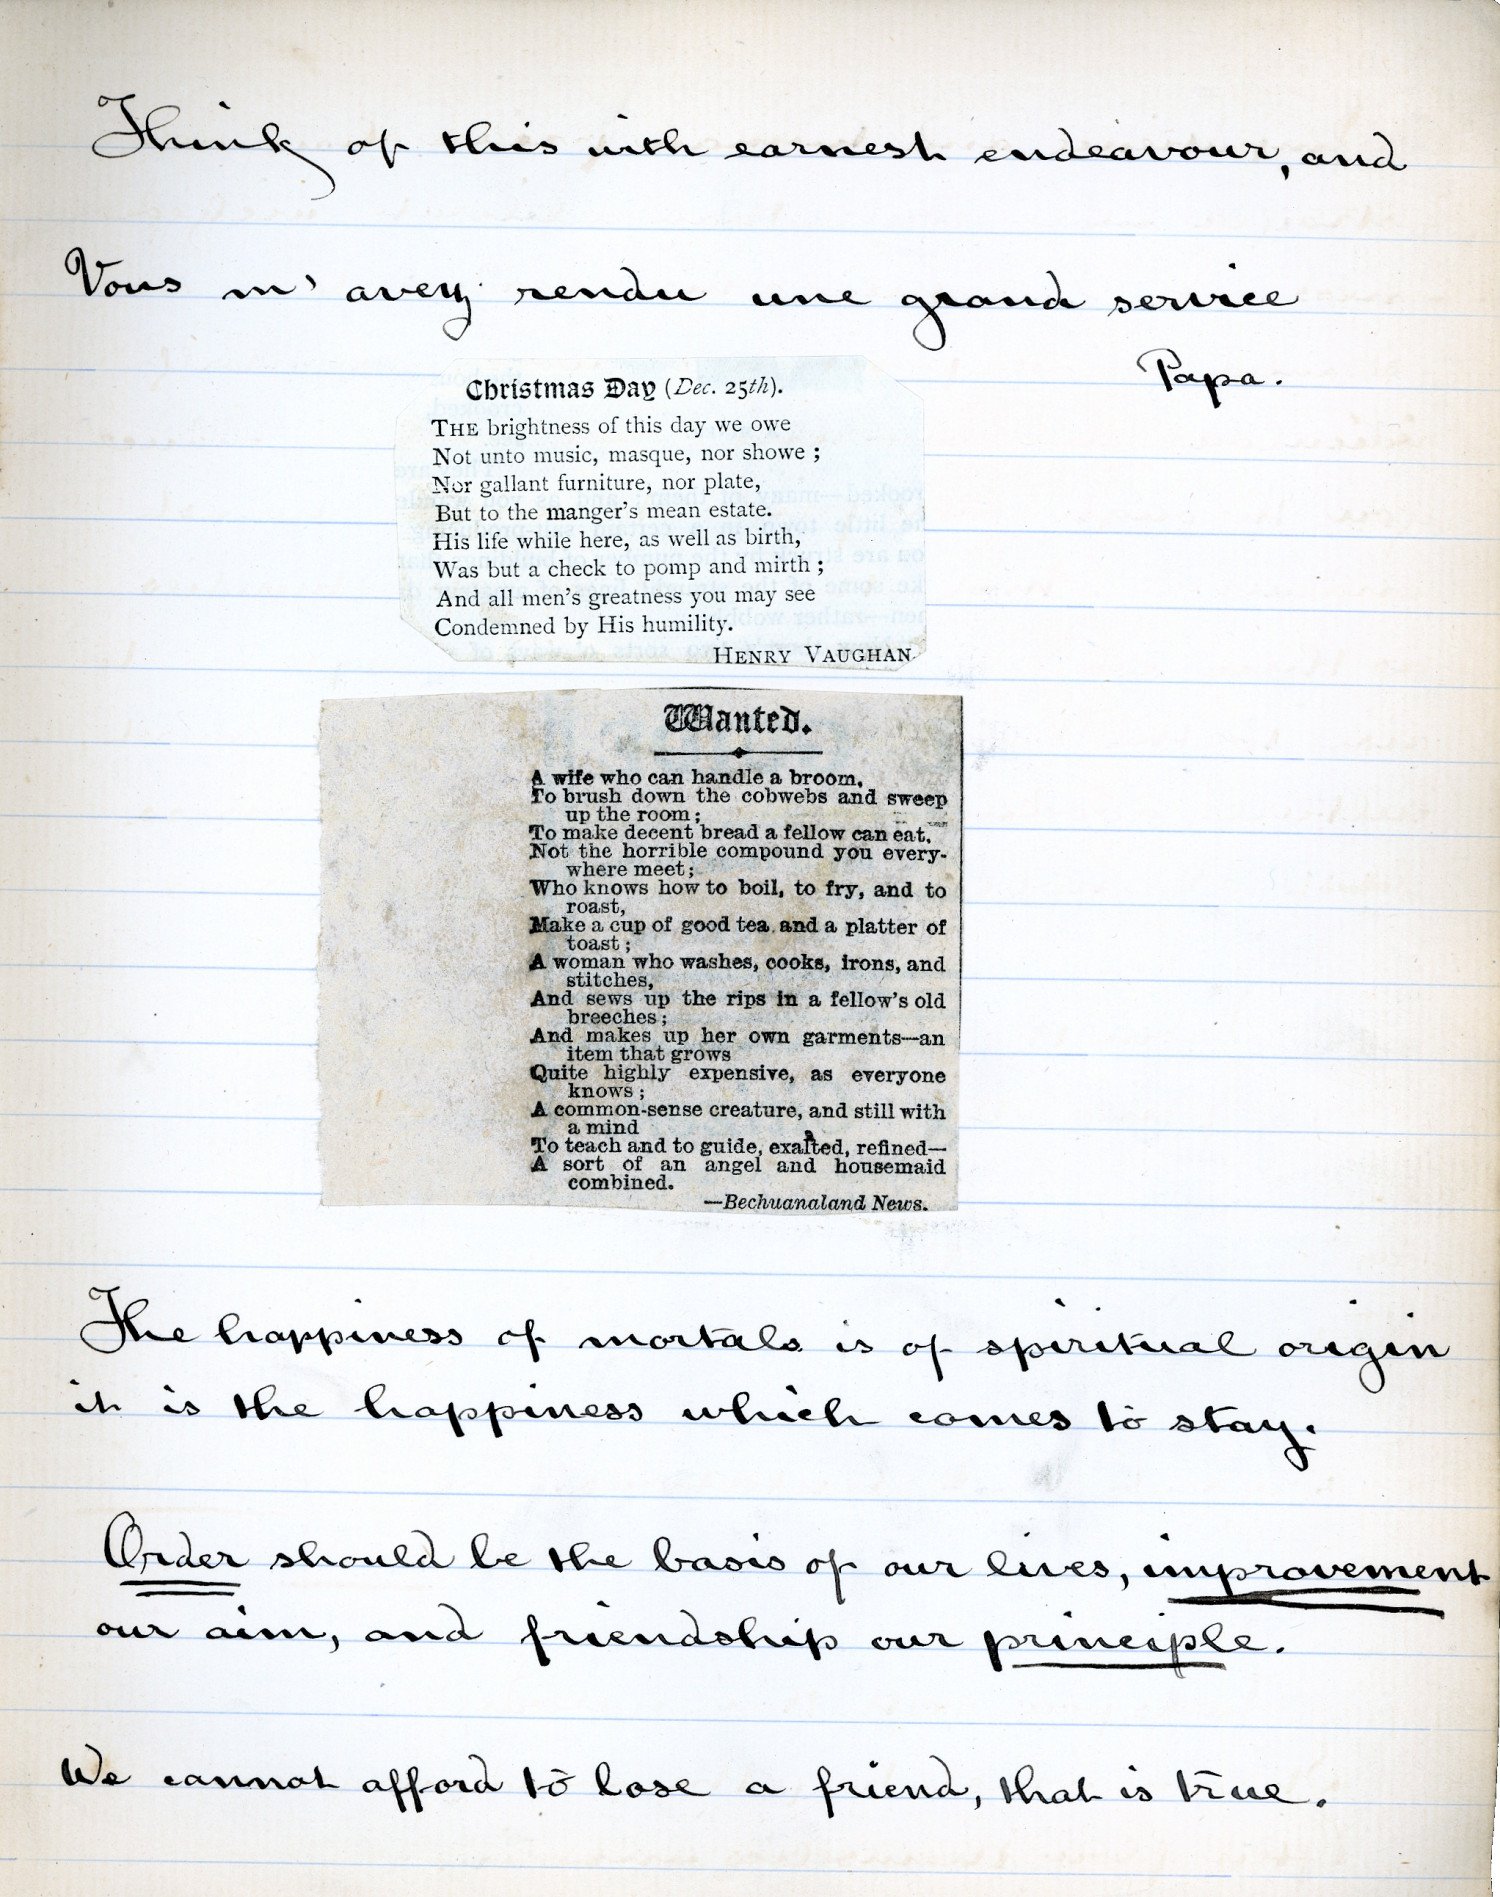 Think of this with earnest endeavour, and
Vous m' avez rendu une grand service
Papa.
Christmas Day (Dec. 25th).
THE brightness of this day we owe
Not unto music, masque, nor showe ;
Nor gallant furniture, nor plate,
But to the manger's mean estate.
His life while here, as well as birth,
Was but a check to pomp and mirth ;
And all men's greatness you may see
Condemned by His humility.
HENRY VAUGHAN
Wanted.
A wife who can handle a broom,
To brush down the cobwebs and sweep
up the room ;
To make decent bread a fellow can eat.
Not the horrible compound you every-
where meet ;
Who knows how to boil, to fry, and to
roast,
Make a cup of good tea and a platter of
toast ;
A woman who washes, cooks, irons, and
stitches,
And sews up the rips in a fellow's old
breeches ;
And makes up her own garments—an
item that grows
Quite highly expensive, as everyone
knows ;
A common-sense creature, and still with
a mind
To teach and to guide, exalted, refined—
A sort of an angel and housemaid
combined.
—Bechuanaland News.
The happiness of mortals is of spiritual origin
it is the happiness which comes to stay.
Order should be the basis of our lives, improvement
our aim, and friendship our principle.
We cannot afford to lose a friend, that is true.